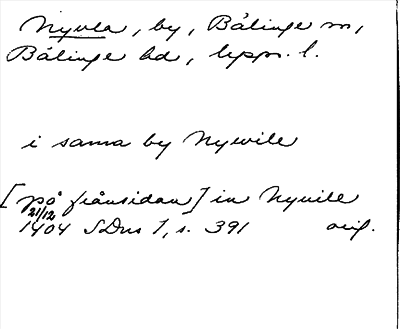 Nyvla, by, Bälinge sn,
Bälinge hd, Upps. l.
i sama by Nywile
[på frånsidan] in Nyuile
21/12
1404 SDns 1, s. 391 orig.